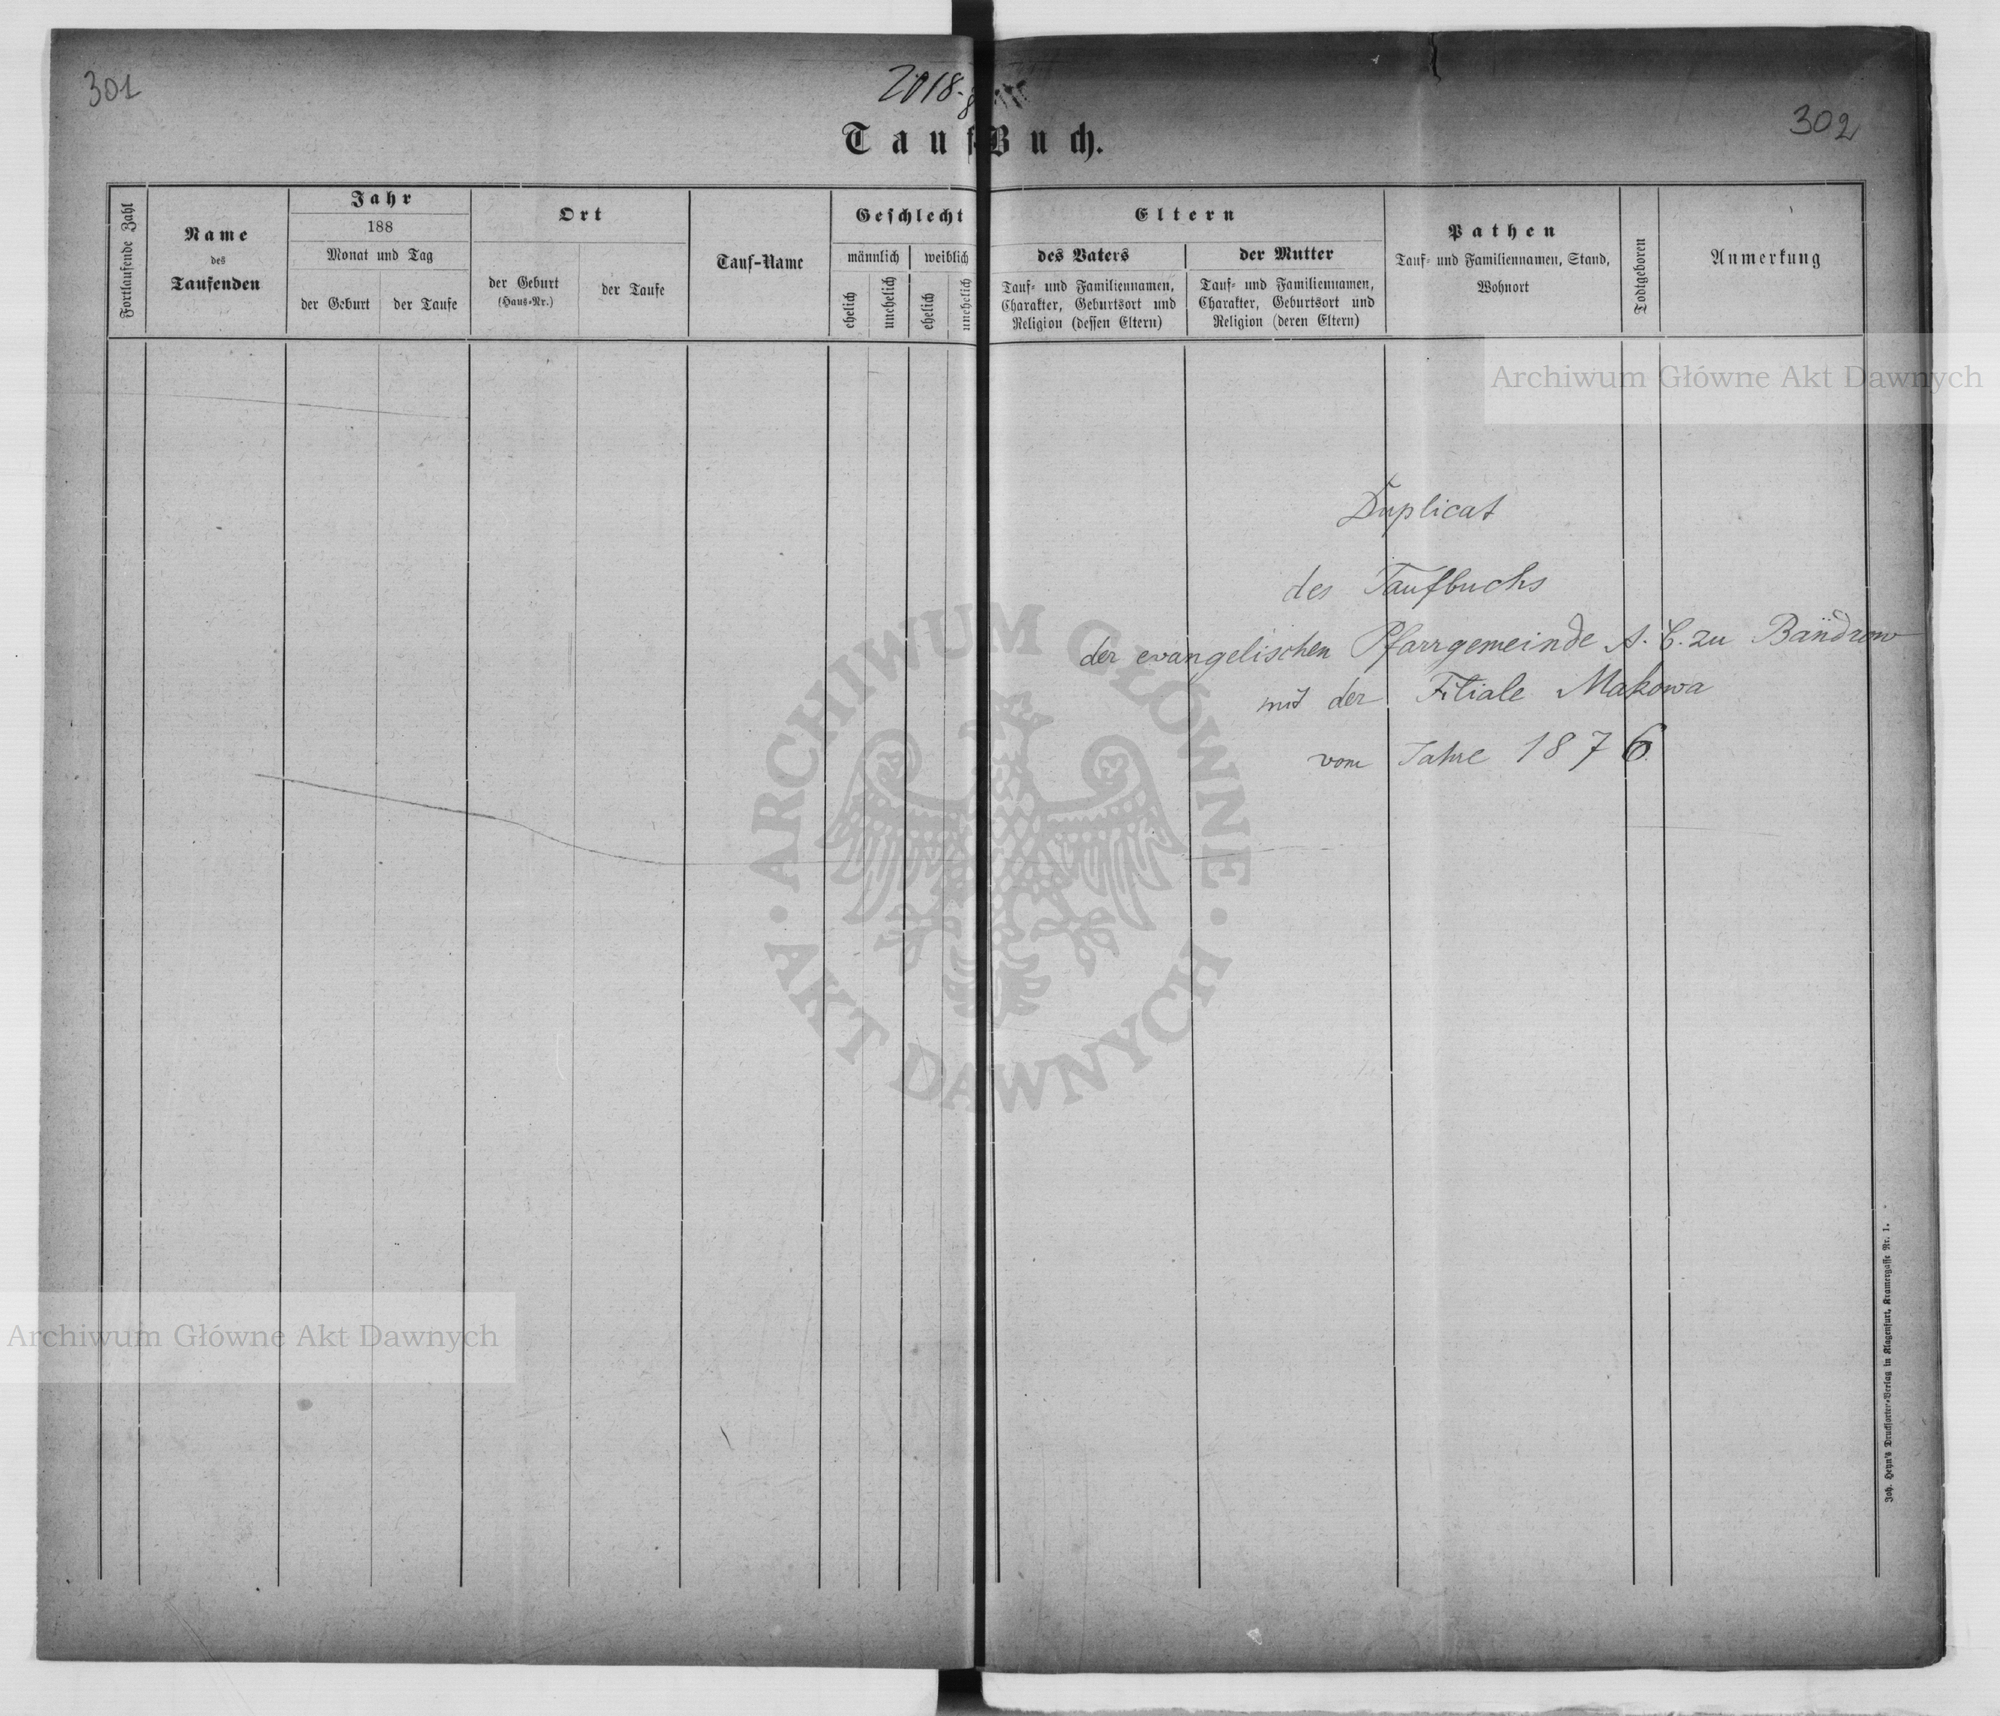 301
302
2018.
Tauf-Buch.
Fortlaufende Zahl
Name
des
Taufenden
Jahr
188
Monat und Tag
der Geburt
der Taufe
Ort
der Geburt
(Haus-Nr.)
der Taufe
Tauf-Name
Geschlecht
männlich
weiblich
ehelich
unehelich
ehelich
unehelich
Eltern
des Vaters
Tauf- und Familiennamen,
Charakter, Geburtsort und
Religion (dessen Eltern)
der Mutter
Tauf- und Familiennamen,
Charakter, Geburtsort und
Religion (deren Eltern)
Pathen
Tauf- und Familiennamen, Stand,
Wohnort
Todtgeboren
Anmerkung
Archiwum Główne Akt Dawnych
Duplicat
des Taufbuchs
der evangelischen Pfarrgemeinde A. C. zu Bandrow
mit der Filiale Makowa
vom Jahre 1876
ARCHIWUM GŁÓWNE
AKT DAWNYCH
Archiwum Główne Akt Dawnych
Joh. Heyn's Drucksorten-Verlag in Klagenfurt, Kramergasse Nr. 1.